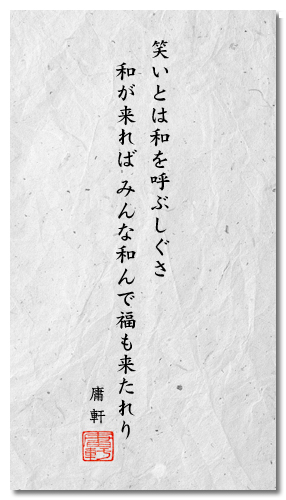 笑いとは和を呼ぶしぐさ
和が来れば みんな和んで福も来たれり
庸軒
庸軒